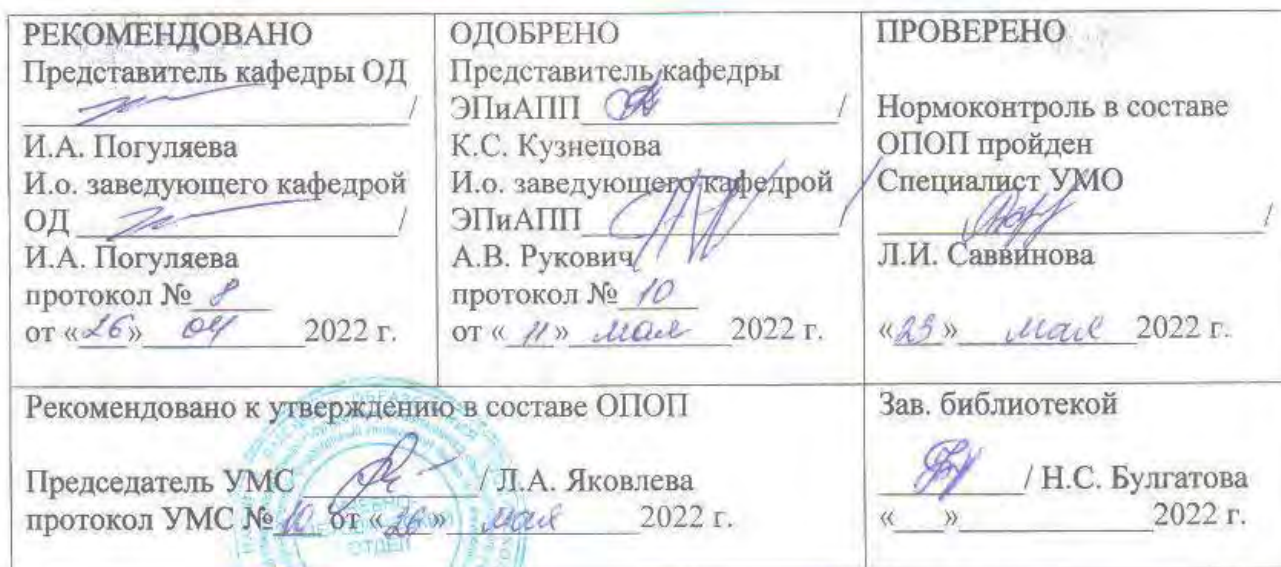 РЕКОМЕНДОВАНО
Представитель кафедры ОД
/
И.А. Погуляева
И.о. заведующего кафедрой
ОД /
И.А. Погуляева
протокол № 8
от «26» 04 2022 г.
ОДОБРЕНО
Представитель кафедры
ЭПиАПП /
К.С. Кузнецова
И.о. заведующего кафедрой
ЭПиАПП /
А.В. Рукович
протокол № 10
от « 11 » мая 2022 г.
ПРОВЕРЕНО
Нормоконтроль в составе
ОПОП пройден
Специалист УМО
/
Л.И. Саввинова
«23 » мая 2022 г.
Рекомендовано к утверждению в составе ОПОП
Председатель УМС / Л.А. Яковлева
протокол УМС № 10 от «26» мая 2022 г.
ОТДЕЛ
Зав. библиотекой
/ Н.С. Булгатова
« » 2022 г.